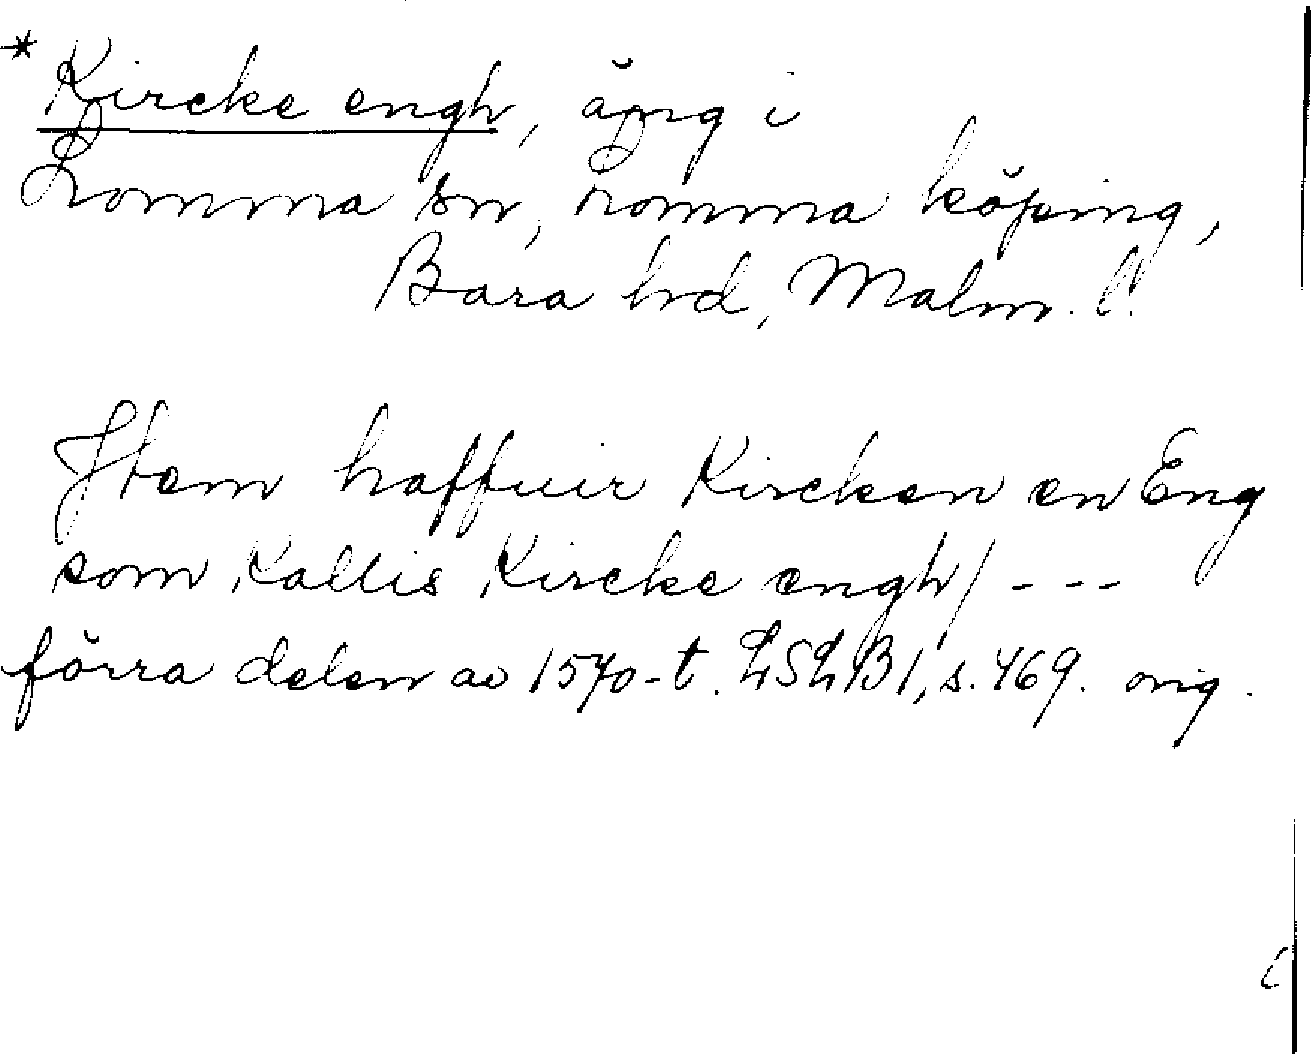 * Kircke engh, äng i
Lomma sn, Lomma köping,
Bara hd, Malm. l.
Jtem haffuir Kircken en Eng
som Kallis Kircke engh/ ---
förra delen av 1570-t. LSLB1, s. 469. orig.